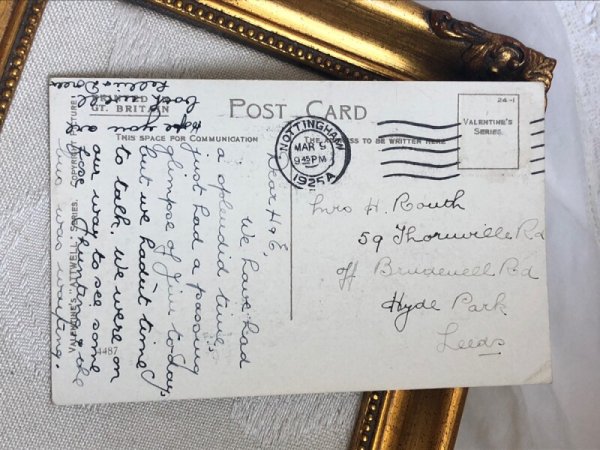 POST CARD
PRINTED IN
GT. BRITAIN
THIS SPACE FOR COMMUNICATION
THE ADDRESS TO BE WRITTEN HERE
24-1
VALENTINE'S
SERIES.
NOTTINGHAM
MAR 5
9 45 PM
1925 A
Mrs H. Routh
59 Thornville Rd
off Brudenell Rd
Hyde Park
Leeds
Dear H & E,
We have had
a splendid time
just had a passing
glimpse of Jim today
but we hadn't time
to talk. We were on
our way to see some
lace & the
bus was waiting.
Hope you are
both well
4487